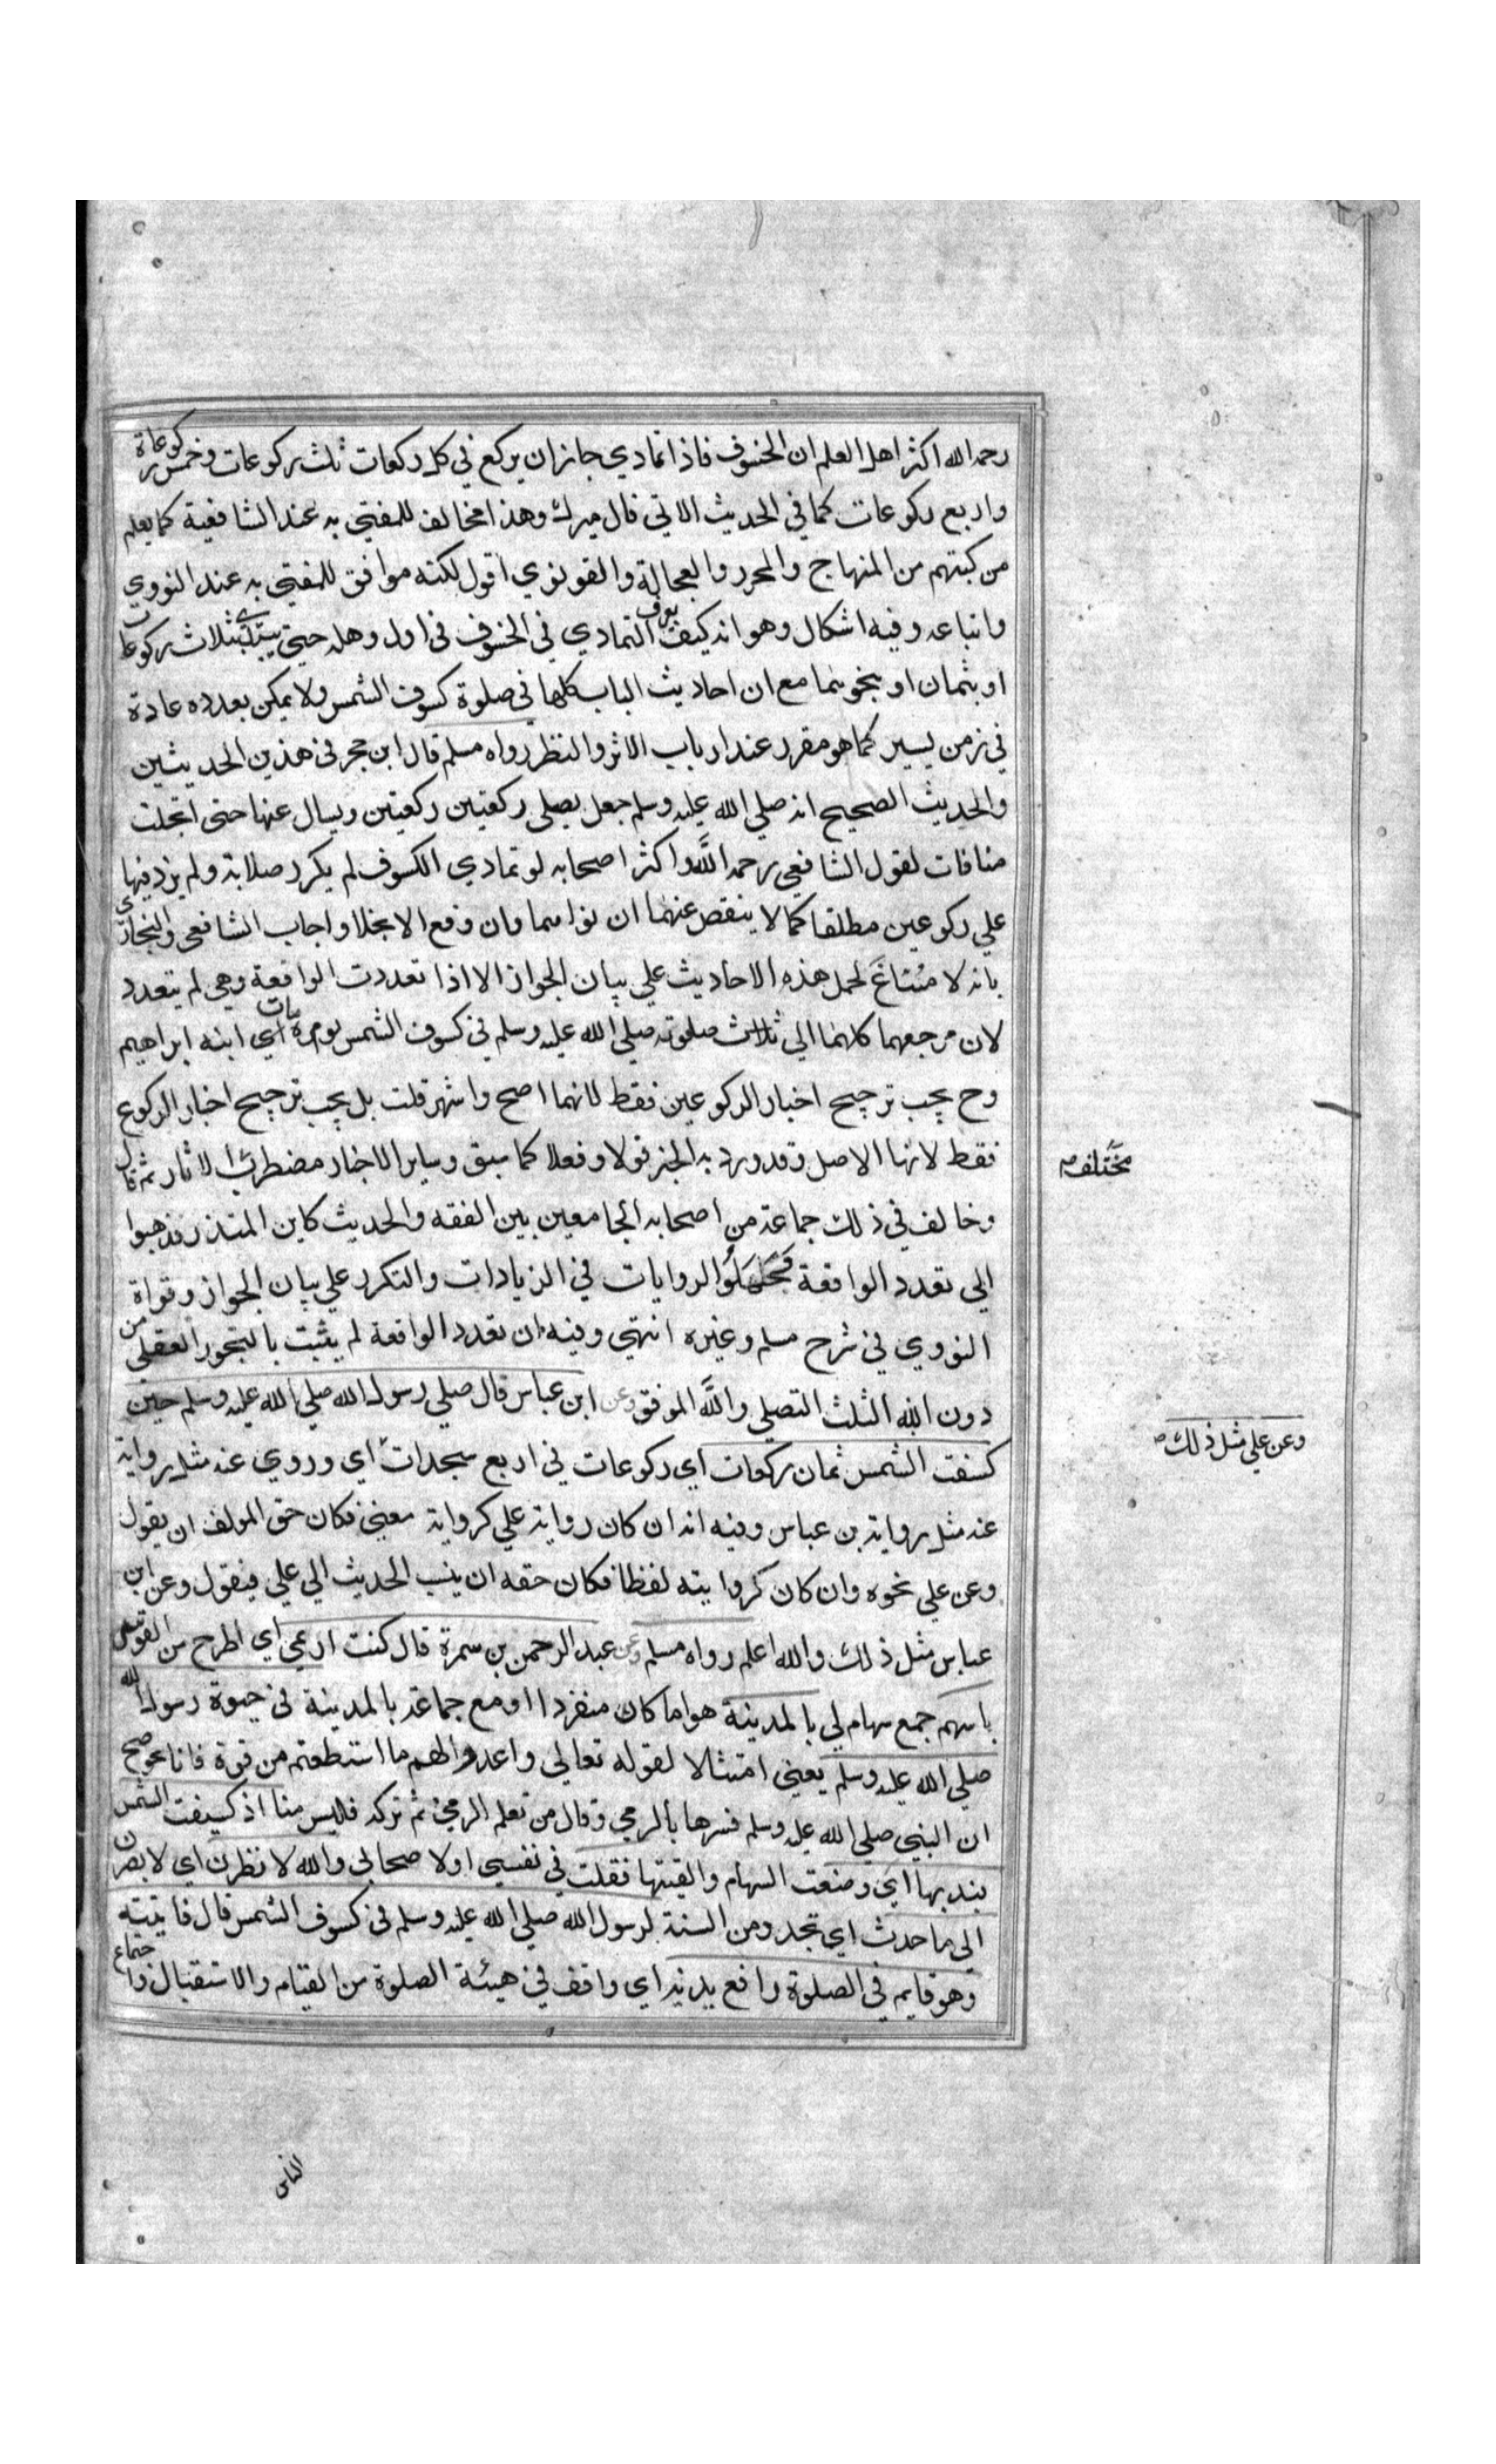 رحمه الله اكثر اهل العلم ان الخسوف فاذا تمادي جاز ان يركع في كل ركعات ثلث ركوعات وخمس ركوعات
واربع ركوعات كما في الحديث الاتي قال ميرك وهذا مخالف للمفتي به عند الشافعية كما يعلم
من كتبهم من المنهاج والمحرر والعجالة والقونوي اقول لكنه موافق للمفتي به عند النووي
واتباعه وفيه اشكال وهو انه كيف يعرف التمادي في الخسوف في اول وهله حتي يبتدي بثلاث ركوعات
او بثمان او بنحوهما مع ان احاديث الباب كلها في صلوة كسوف الشمس ولا يمكن بعدده عادة
في زمن يسير كما هو مقرر عند ارباب الاثر والنظر رواه مسلم قال ابن حجر في هذين الحديثين
والحديث الصحيح انه صلي الله عليه وسلم جعل يصلي ركعتين ركعتين ويسال عنها حتى انجلت
منافات لقول الشافعي رحمه الله واكثر اصحابه لو تمادي الكسوف لم يكرر صلاته ولم يزد فيها
علي ركوعين مطلقا كما لا ينقص عنهما ان نواهما وان وقع الانجلا واجاب الشافعي والبخاري
بانه لا مساغ لحمل هذه الاحاديث علي بيان الجواز الا اذا تعددت الواقعة وهي لم يتعدد
لان مرجعهما كلهما الي ثلاث صلوته صلي الله عليه وسلم في كسوف الشمس يوم مات اي ابنه ابراهيم
وح يجب ترجيح اخبار الركوعين فقط لانهما اصح واشهر قلت بل يجب ترجيح اخبار الركوع
فقط لانها الاصل وقد ورد به الخبر قولا وفعلا كما سبق وساير الاخبار مضطرب الاثار ثم قال
مختلف
وخالف في ذلك جماعة من اصحابه الجامعين بين الفقه والحديث كابن المنذر فذهبوا
الي تعدد الواقعة فحملوا الروايات في الزيادات والتكرر علي بيان الجواز وقواه
النووي في شرح مسلم وغيره انتهي وفيه ان تعدد الواقعة لم يثبت بالتجور العقلي من
دون النقلي والله الموفق وعن ابن عباس قال صلي رسول الله صلي الله عليه وسلم حين
كسفت الشمس ثمان ركعات اي ركوعات في اربع سجدات اي وروي عنه مثل رواية
وعن علي مثل ذلك
عنه مثل رواية بن عباس وفيه انه ان كان رواية علي كرواية معني فكان حق المولف ان يقول
وعن علي نحوه وان كان كروايته لفظا فكان حقه ان ينسب الحديث الي علي فيقول وعن ابن
عباس مثل ذلك والله اعلم رواه مسلم وعن عبد الرحمن بن سمرة قال كنت ارمي اي اطرح من القوس
باسهم جمع سهام لي بالمدينة هو اما كان منفردا او مع جماعة بالمدينة في حيوة رسول الله
صلي الله عليه وسلم يعني امتثالا لقوله تعالي واعدوا لهم ما استطعتم من قوة فانه صح
ان النبي صلي الله عليه وسلم فسرها بالرمي وقال من تعلم الرمي ثم تركه فليس منا اذ كسفت الشمس
بنذبها اي وضعت السهام والقيتها فقلت في نفسي او لاصحابي والله لانظرن اي لابصرن
الي ما حدث اي تجدد من السنة لرسول الله صلي الله عليه وسلم في كسوف الشمس قال فاتيته
وهو قايم في الصلوة رافع يديه اي واقف في هيئة الصلوة من القيام والاستقبال واجتماع
الناس